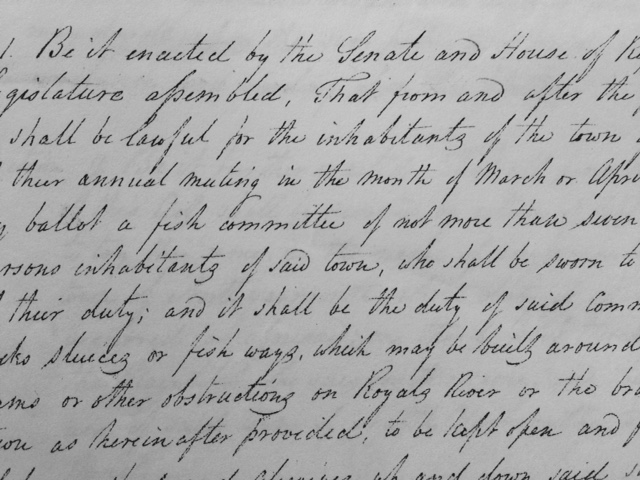 1. Be it enacted by the Senate and House of Re
gislature assembled, That from and after the p
shall be lawful for the inhabitants of the town
their annual meeting in the month of March or Apri
ballot a fish committee of not more than seven
ersons inhabitants of said town, who shall be sworn to
their duty; and it shall be the duty of said Comm
sluices or fish ways, which may be built around
ams or other obstructions on Royals River or the bra
tion as hereinafter provided, to be kept open and f
up and down said